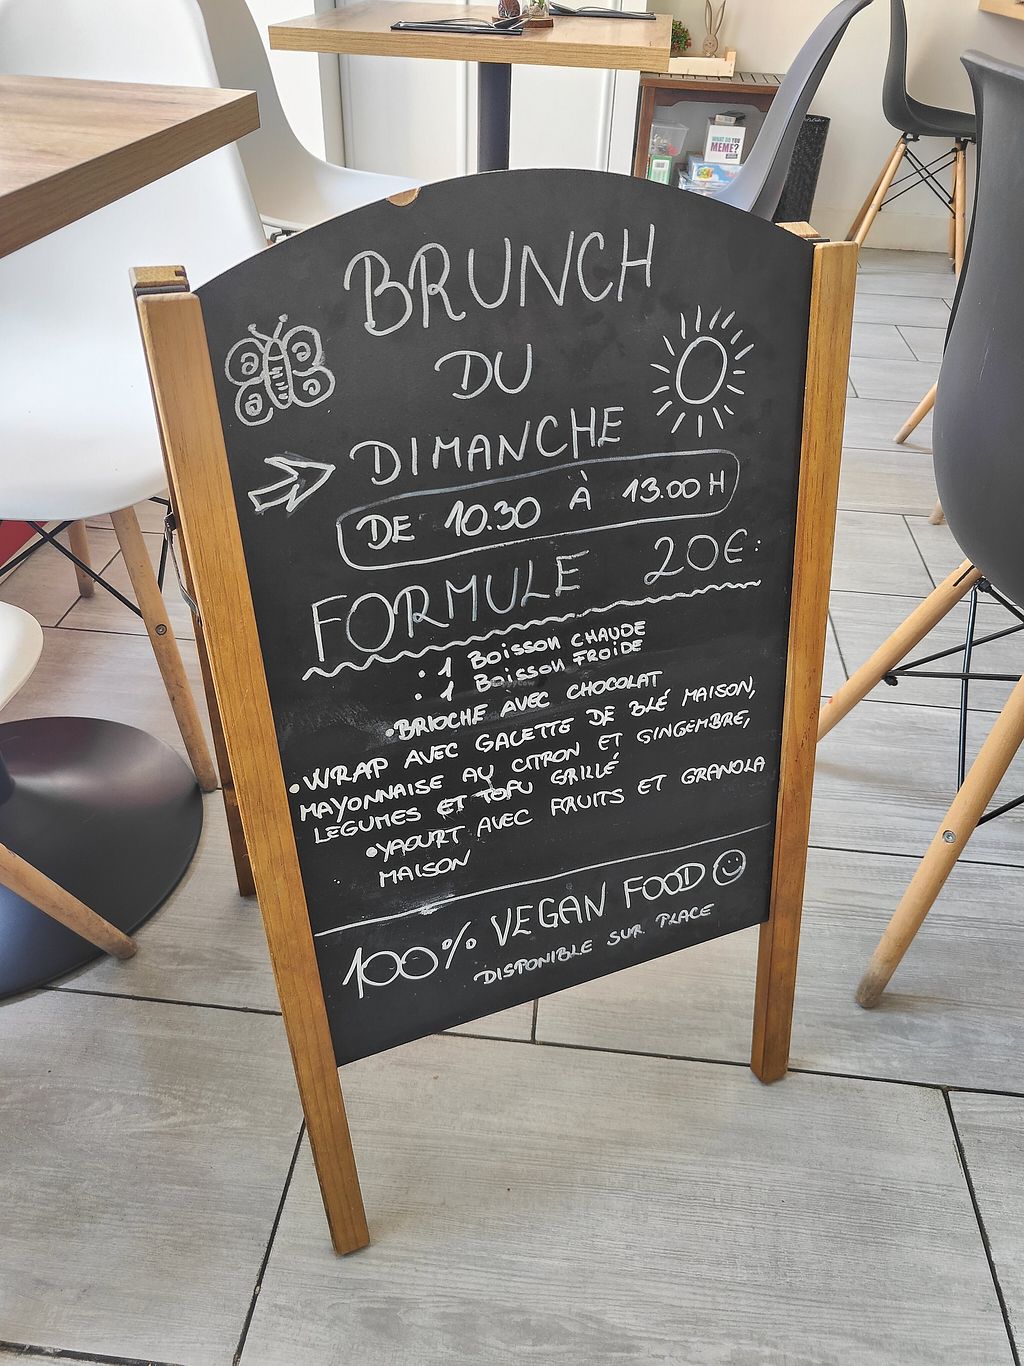 WHAT DO YOU
MEME?
BRUNCH
DU
DIMANCHE
DE 10.30 À 13.00 H
FORMULE 20€:
: 1 BOISSON CHAUDE
: 1 BOISSON FROIDE
•BRIOCHE AVEC CHOCOLAT
•WRAP AVEC GALETTE DE BLÉ MAISON,
MAYONNAISE AU CITRON ET GINGEMBRE,
LEGUMES ET TOFU GRILLÉ
•YAOURT AVEC FRUITS ET GRANOLA
MAISON
100% VEGAN FOOD
DISPONIBLE SUR PLACE